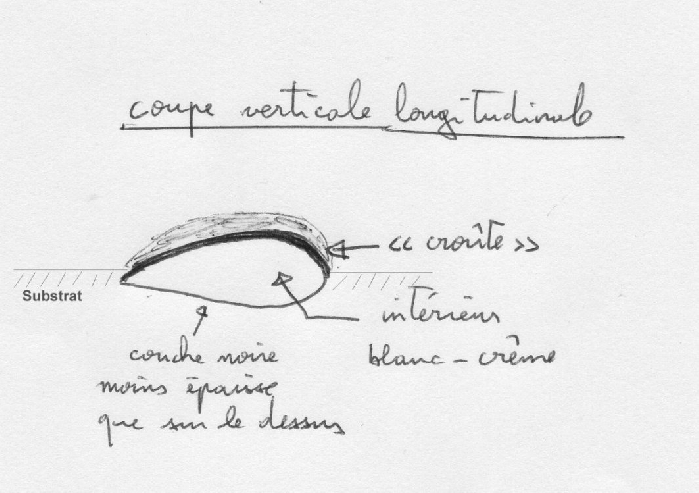 coupe verticale longitudinale
<< croûte >>
Substrat
intérieur
blanc - crème
couche noire
moins épaisse
que sur le dessus